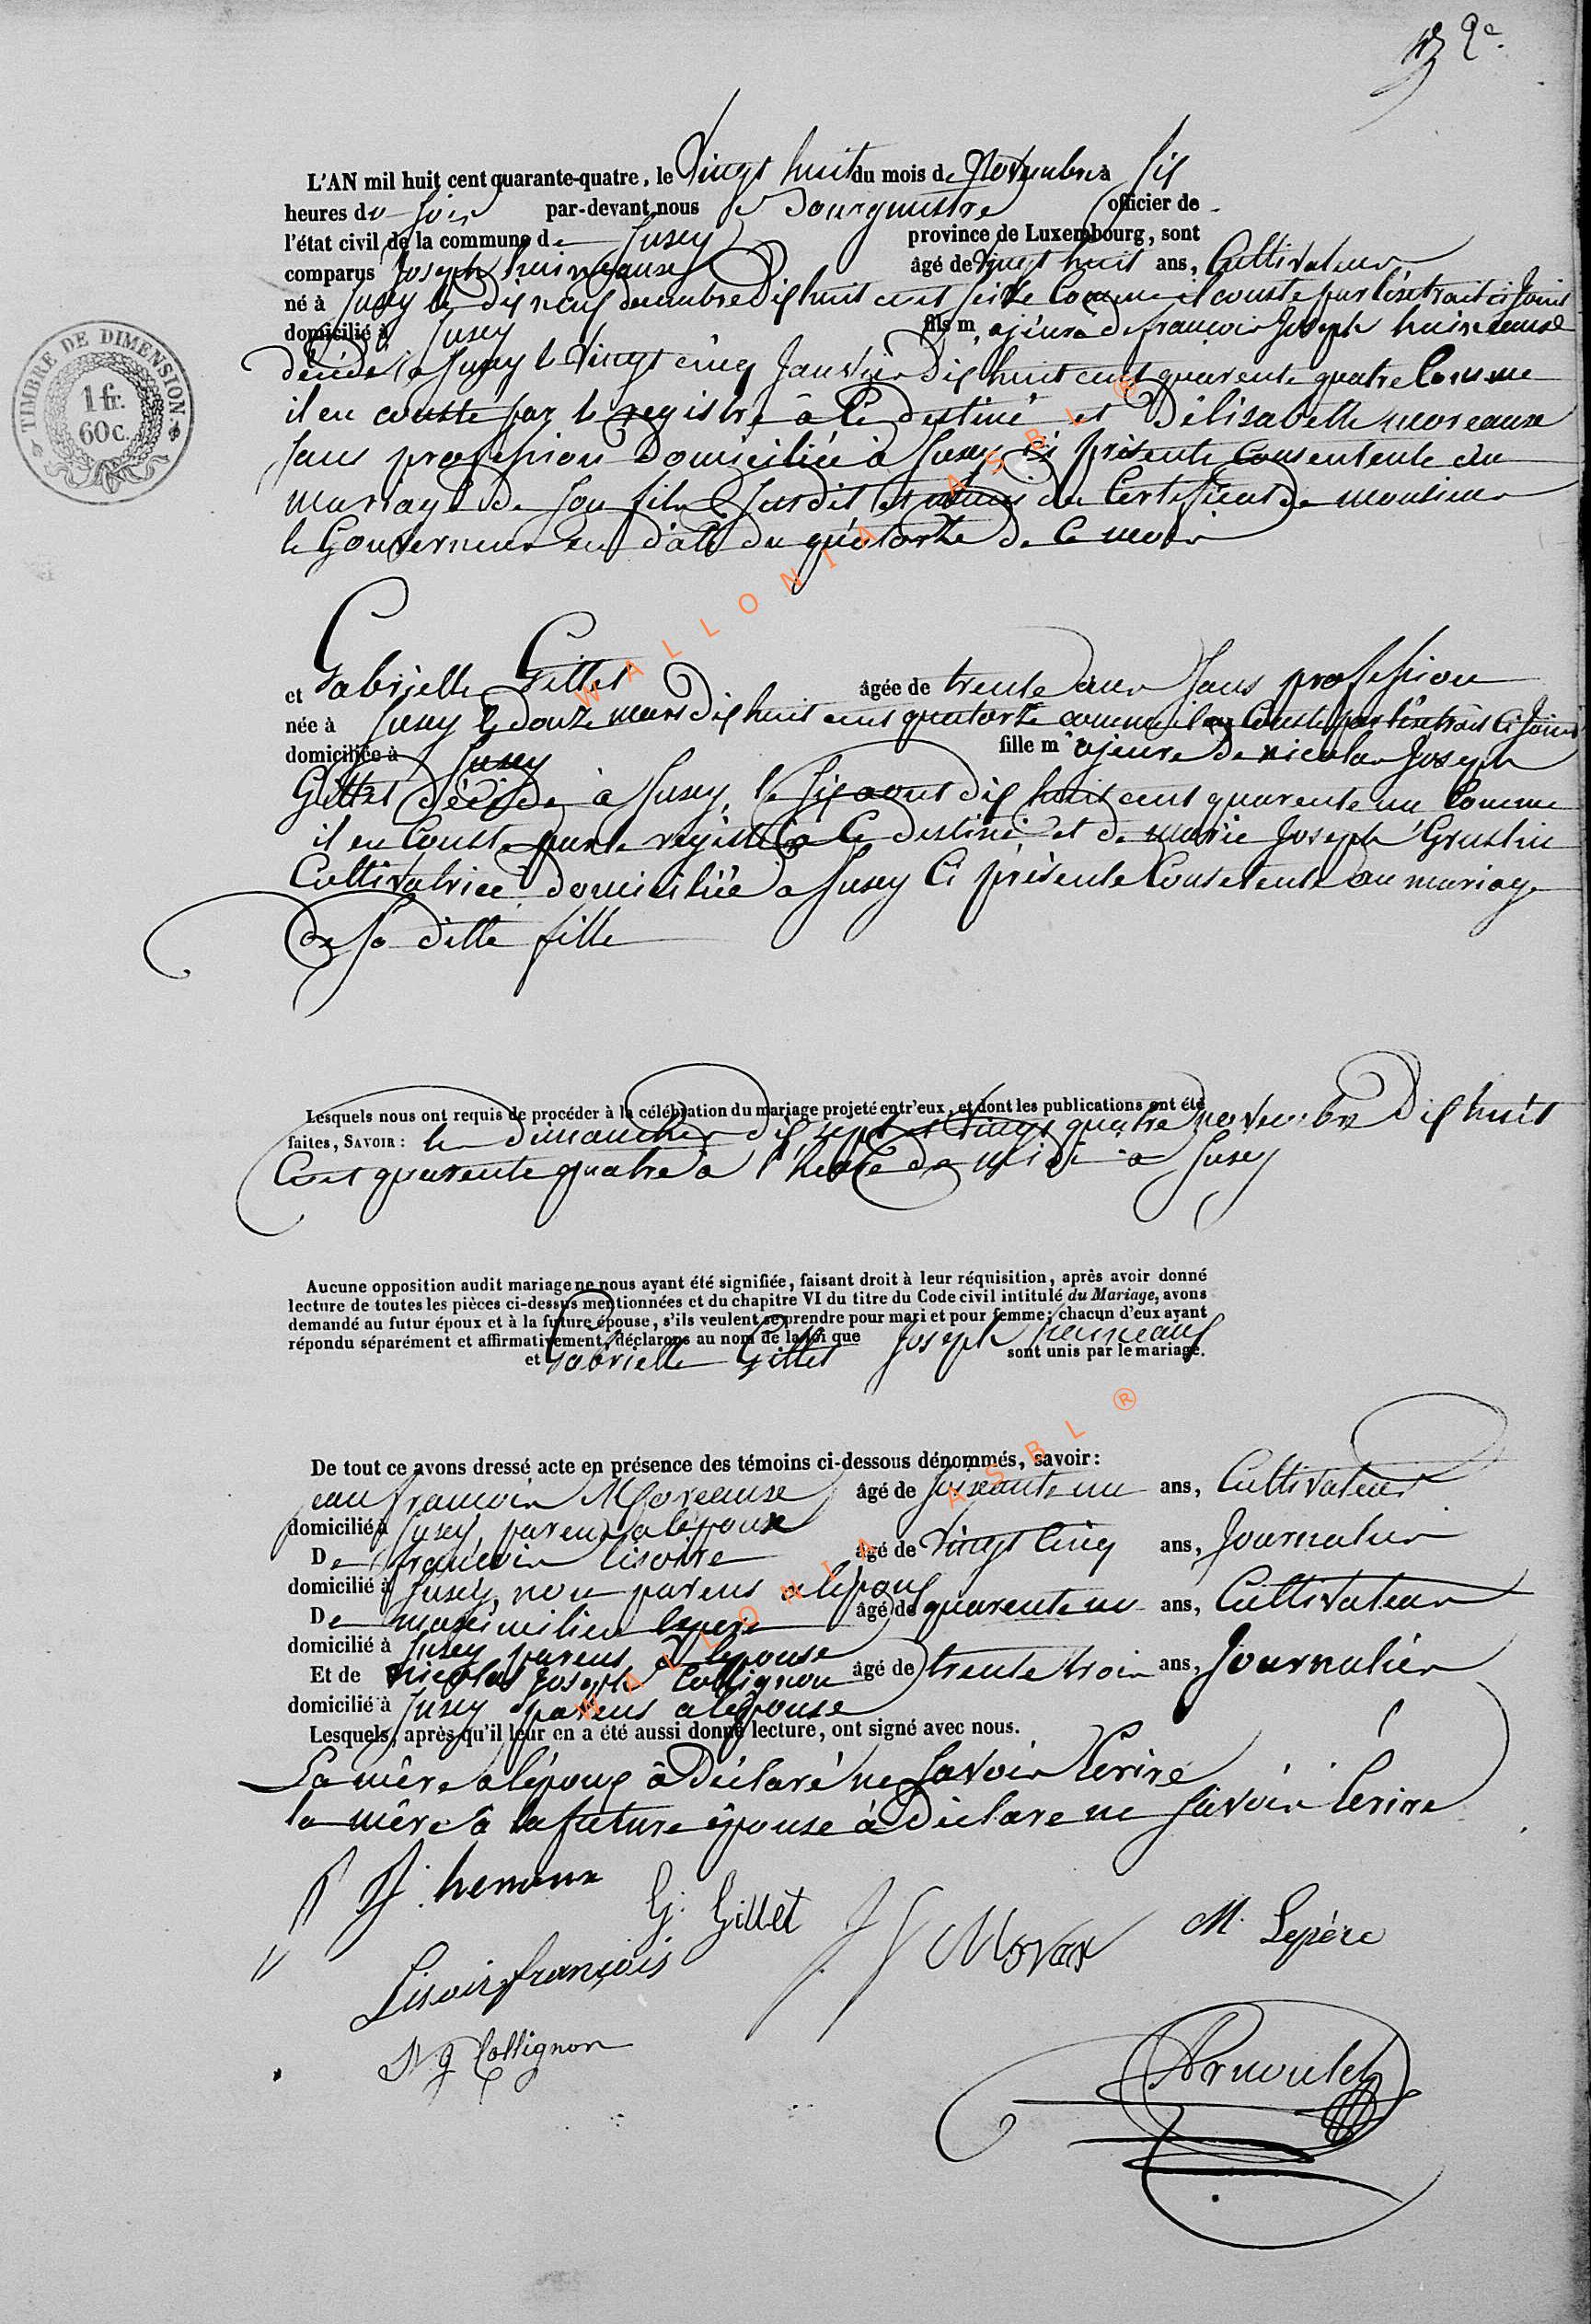 2e.
TIMBRE DE DIMENSION
1 fr.
60 c.
L'AN mil huit cent quarante-quatre, le Vingt huit du mois de Novembre à Six
heures du Soir par-devant nous Bourgmestre officier de
l'état civil de la commune de Jusey province de Luxembourg, sont
comparus Joseph huineaux âgé de Vingt huit ans, Cultivateur
né à Jusey le dix neuf decembre dix huit cent seize Comme il conste par l'extrait ci Joint
domicilié à Jusey fils m ajeure de françois Joseph huineaux
décédé à Jusey le Vingt cinq Janvier dix huit cent quarente quatre Comme
il en conste par le registre à ce destiné et D'élisabette moreaux
sans profession domiciliée à Jusey ci présente Consentente au
mariage de son fils Susdit et muni du Certificat de monsieur
le Gouverneur en date du quatorze de ce mois
et Gabrielle Gillet âgée de trente ans Sans profession
née à Jusey le douze mars dix huit cent quatorze comme il en Conste par l'extrait Ci Joint
domiciliée à Jusey fille m ajeure de nicolas Joseph
Gillet décédé à Jusey, le Six aout dix huit cent quarente un Comme
il en Conste par le registre à Ce destiné et de marie Joseph Gruslin
Cultivatrice domiciliée à Jusey Ci présente Consetente au mariage
de sa ditte fille
Lesquels nous ont requis de procéder à la célébration du mariage projeté entr'eux, et dont les publications ont été
faites, SAVOIR : les dimanches dix sept et Vingt quatre novembre Dix huit
Cent quarente quatre à l'heure de Midi à Jusey
Aucune opposition audit mariage ne nous ayant été signifiée, faisant droit à leur réquisition, après avoir donné
lecture de toutes les pièces ci-dessus mentionnées et du chapitre VI du titre du Code civil intitulé du Mariage, avons
demandé au futur époux et à la future épouse, s'ils veulent se prendre pour mari et pour femme ; chacun d'eux ayant
répondu séparément et affirmativement, déclarons au nom de la loi que Joseph heuneaux
et Gabrielle Gillet sont unis par le mariage.
De tout ce avons dressé acte en présence des témoins ci-dessous dénommés, savoir :
jean françois Moreause âgé de Soixante un ans, Cultivateur
domicilié à Jusey, parent à lépoux
De françois lisoire âgé de Vingt Cinq ans, Journalier
domicilié à Jusey, non parens a lépoux
De maximilien lepere âgé de quarente un ans, Cultivateur
domicilié à Jusey parens à lepouse
Et de Nicolas Joseph Collignon âgé de trente trois ans, Journalier
domicilié à Jusey parens a lépouse
Lesquels, après qu'il leur en a été aussi donné lecture, ont signé avec nous.
La mère a lépoux à Déclaré ne Savoir Ecrire
la mère à la future épouse à Déclare ne Savoir Ecrire
henoux
G. Gillet
J F Morax
M. Lepére
Lisoir françois
N. J Collignon
Arnould
WALLONIA ASBL ®
WALLONIA ASBL ®